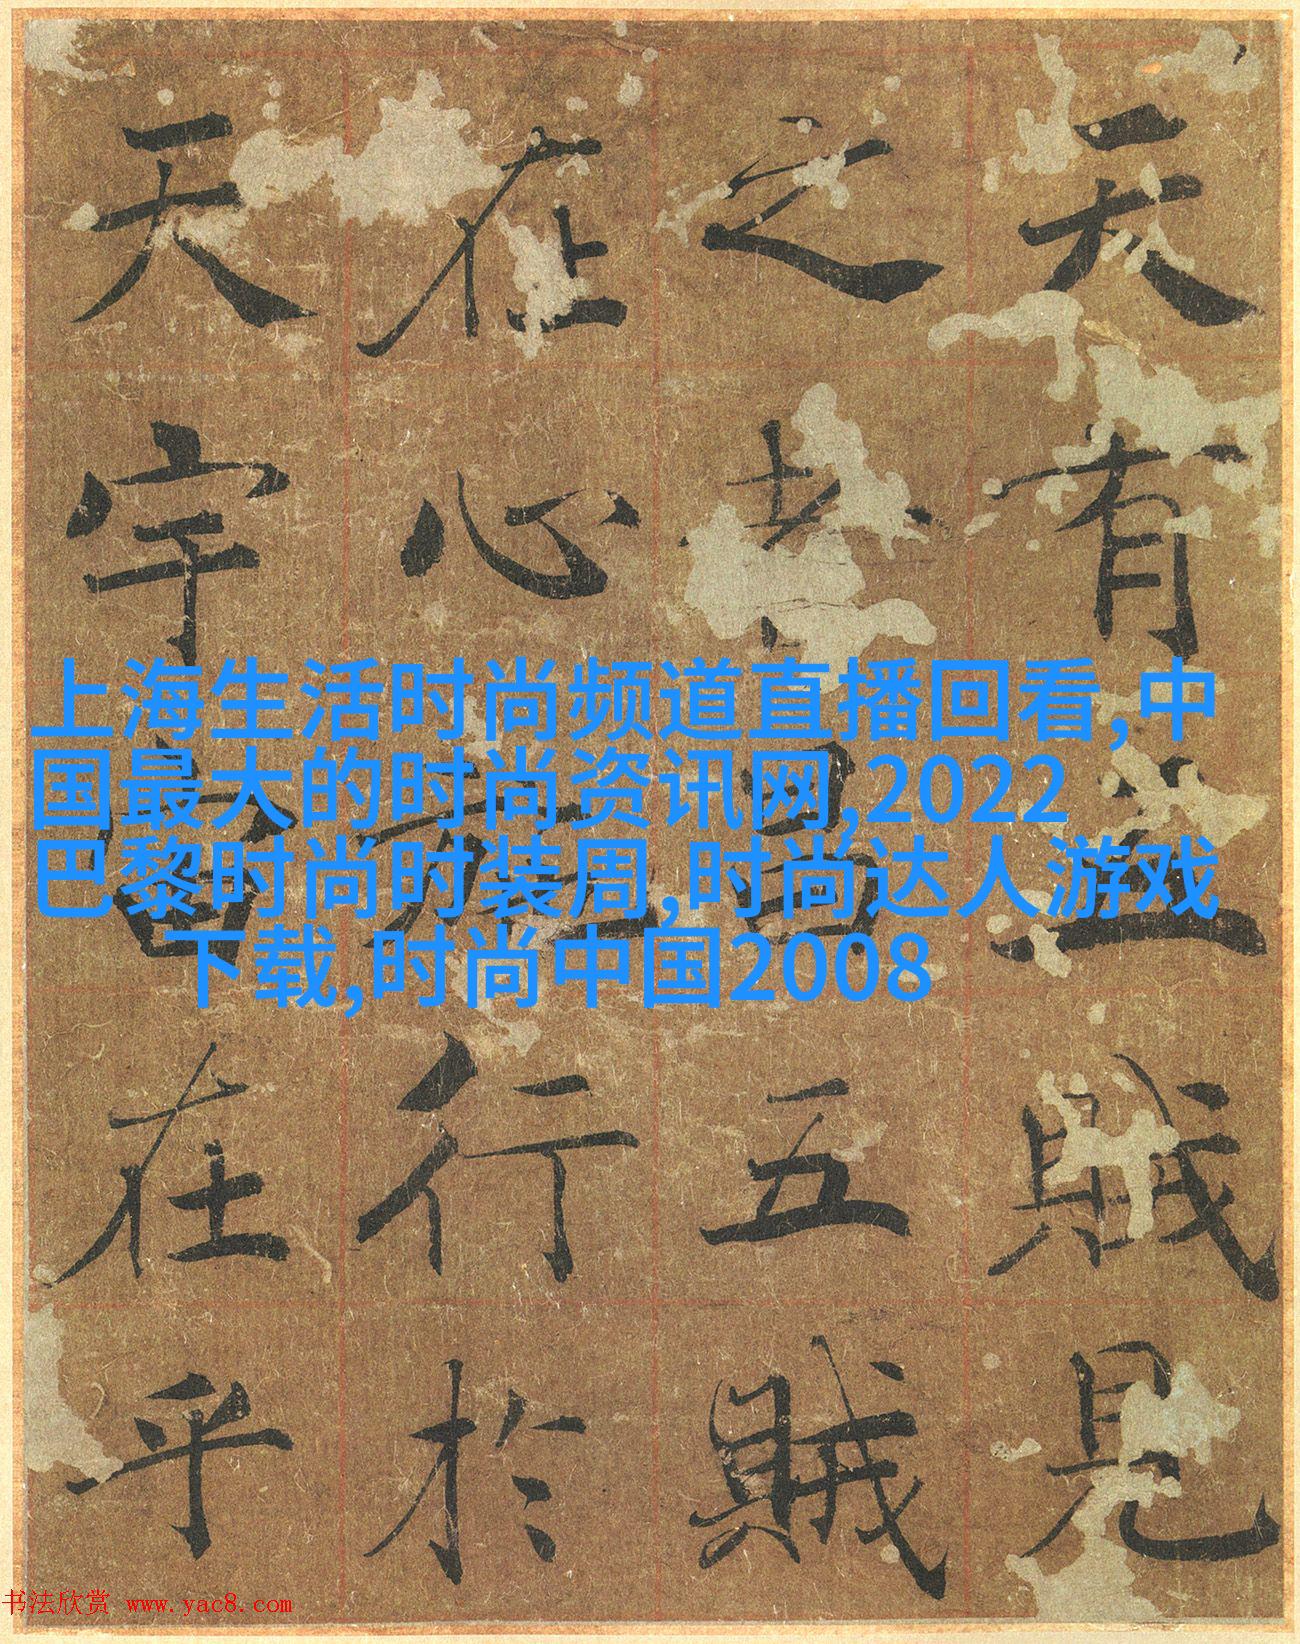 天有五賊見
之者昌五賊
在心施行於
天宇宙在乎
上海生活时尚频道直播回看,中
国最大的时尚资讯网,2022
巴黎时尚时装周,时尚达人游戏
下载,时尚中国2008
书法欣赏 www.yac8.com